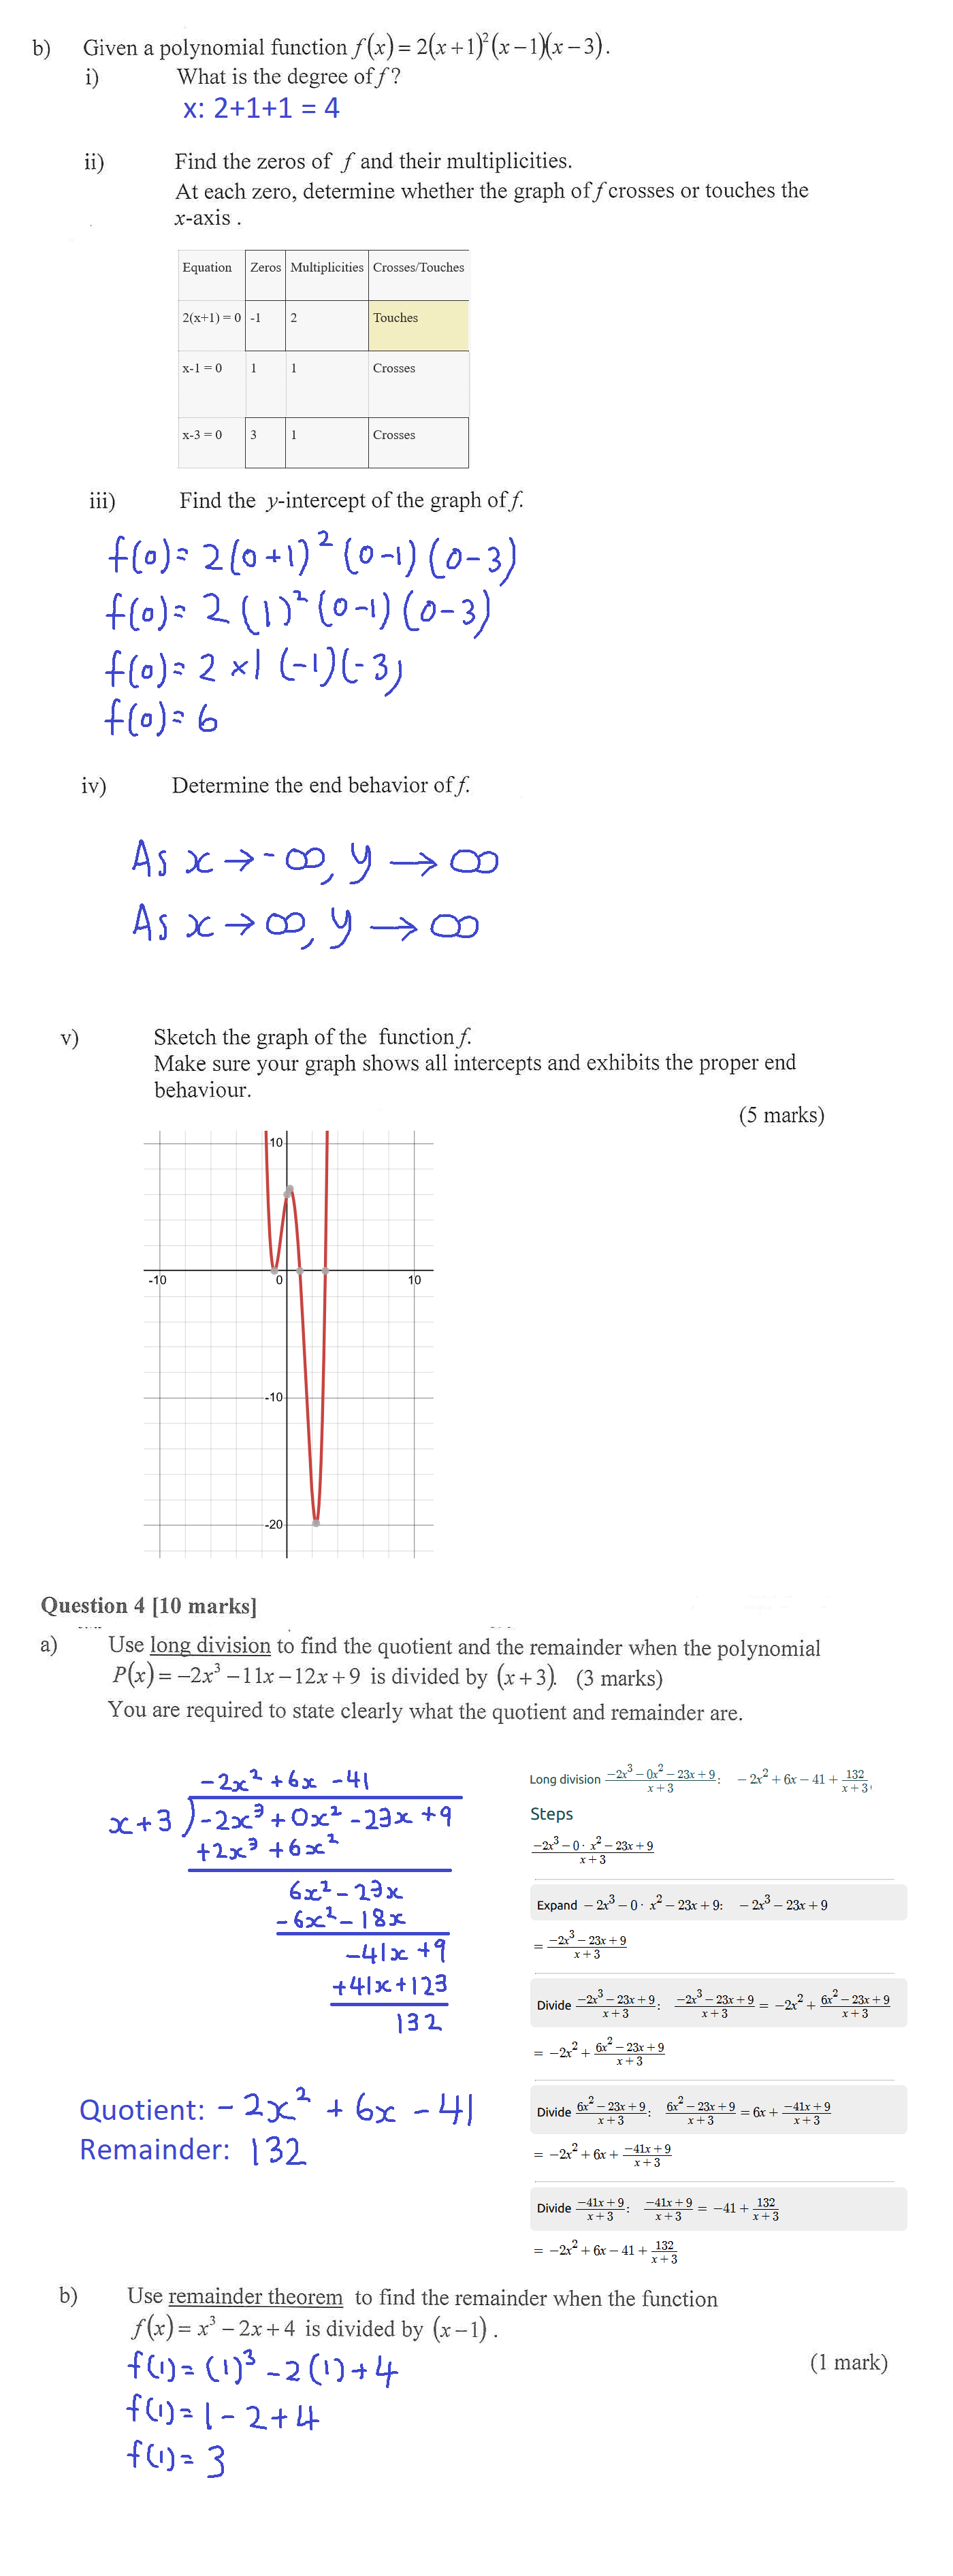 b) Given a polynomial function f(x) = 2(x+1)²(x−1)(x−3).
i) What is the degree of f?
x: 2+1+1 = 4
ii) Find the zeros of f and their multiplicities.
At each zero, determine whether the graph of f crosses or touches the
x-axis .
Equation Zeros Multiplicities Crosses/Touches
2(x+1) = 0 -1 2 Touches
x-1 = 0 1 1 Crosses
x-3 = 0 3 1 Crosses
iii) Find the y-intercept of the graph of f.
f(0) = 2(0+1)² (0-1) (0-3)
f(0) = 2 (1)² (0-1) (0-3)
f(0) = 2 ×1 (-1)(-3)
f(0) = 6
iv) Determine the end behavior of f.
As x → -∞, y → ∞
As x → ∞, y → ∞
v) Sketch the graph of the function f.
Make sure your graph shows all intercepts and exhibits the proper end
behaviour.
(5 marks)
10
-10 0 10
-10
-20
Question 4 [10 marks]
a) Use long division to find the quotient and the remainder when the polynomial
P(x) = −2x³ −11x −12x + 9 is divided by (x+3). (3 marks)
You are required to state clearly what the quotient and remainder are.
-2x² +6x -41
x+3 ) -2x³ +0x² -23x +9
+2x³ +6x²
6x² -23x
-6x² -18x
-41x +9
+41x+123
132
Quotient: -2x² + 6x -41
Remainder: 132
Long division (−2x³ − 0x² − 23x + 9)/(x + 3): −2x² + 6x − 41 + 132/(x + 3)
Steps
(−2x³ − 0 · x² − 23x + 9)/(x + 3)
Expand −2x³ − 0 · x² − 23x + 9: −2x³ − 23x + 9
= (−2x³ − 23x + 9)/(x + 3)
Divide (−2x³ − 23x + 9)/(x + 3): (−2x³ − 23x + 9)/(x + 3) = −2x² + (6x² − 23x + 9)/(x + 3)
= −2x² + (6x² − 23x + 9)/(x + 3)
Divide (6x² − 23x + 9)/(x + 3): (6x² − 23x + 9)/(x + 3) = 6x + (−41x + 9)/(x + 3)
= −2x² + 6x + (−41x + 9)/(x + 3)
Divide (−41x + 9)/(x + 3): (−41x + 9)/(x + 3) = −41 + 132/(x + 3)
= −2x² + 6x − 41 + 132/(x + 3)
b) Use remainder theorem to find the remainder when the function
f(x) = x³ − 2x + 4 is divided by (x−1) .
(1 mark)
f(1) = (1)³ -2(1)+4
f(1) = 1 - 2+4
f(1) = 3